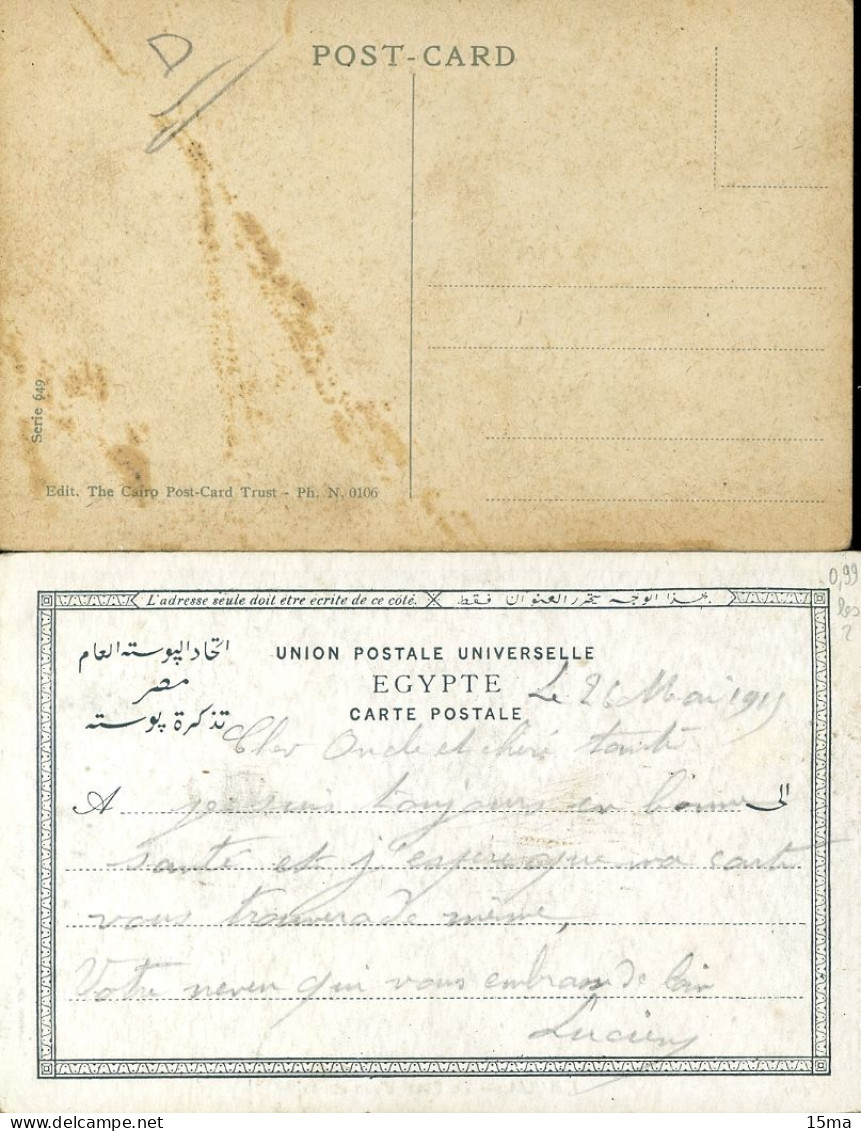 D
POST-CARD
Serie 649
Edit. The Cairo Post-Card Trust - Ph. N. 0106
0,99
les
2
L'adresse seule doit être écrite de ce côté. بهذا الوجه يتحرر العنوان فقط
اتحاد البوسته العام
UNION POSTALE UNIVERSELLE
مصر
EGYPTE
Le 26 Mai 1915
تذكرة بوسته
CARTE POSTALE
Cher Oncle et chère tante
A je suis toujours en bonne الى
santé et j'espère que ma carte
vous trouvera de même,
Votre neveu qui vous embrasse de loin
Lucien
delcampe.net
15ma